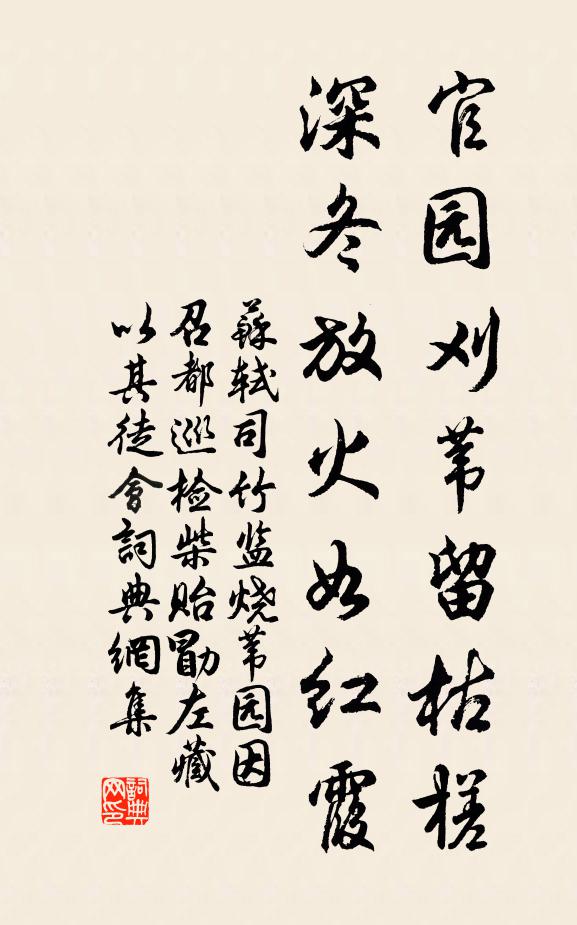 官园刈苇留枯槎
深冬放火如红霞
苏轼司竹监烧苇园因
召都巡检柴贻勖左藏
以其徒会词典網集
詞典网印